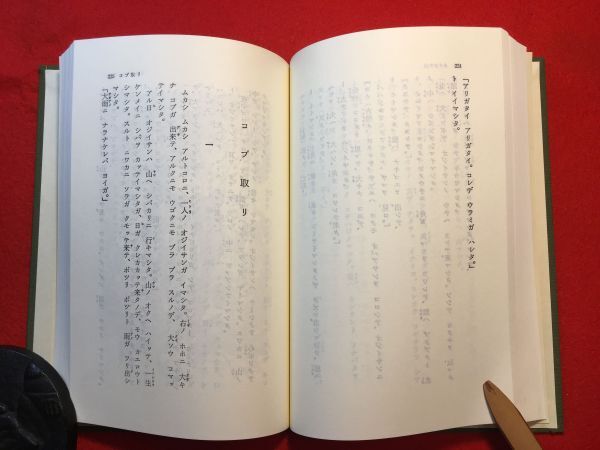 224
「アリガタイ アリガタイ。コレデ ウラミガ ハレタ。」
ト イイマシタ。
225 コブ取リ
コブ取リ
一
ムカシ ムカシ アルトコロニ、一人ノ オジイサンガ イマシタ。右ノ ホホニ 大キ
ナ コブガ 出来テ、アルクニモ ウゴクニモ ブラ ブラ スルノデ、大ソウ コマッ
テイマシタ。
アル日 オジイサンハ 山ヘ シバカリニ 行キマシタ。山ノ オクヘ ハイッテ、一生
ケンメイニ シバヲ カッテイマシタガ、日ガ クレカカッテ来タノデ、モウ カエロウト
シマシタ。スルト ニワカニ ソラガ クモッテ来テ、ポツリ ポツリト 雨ガ フリ出シ
マシタ。
「大雨ニ ナラナケレバ ヨイガ。」